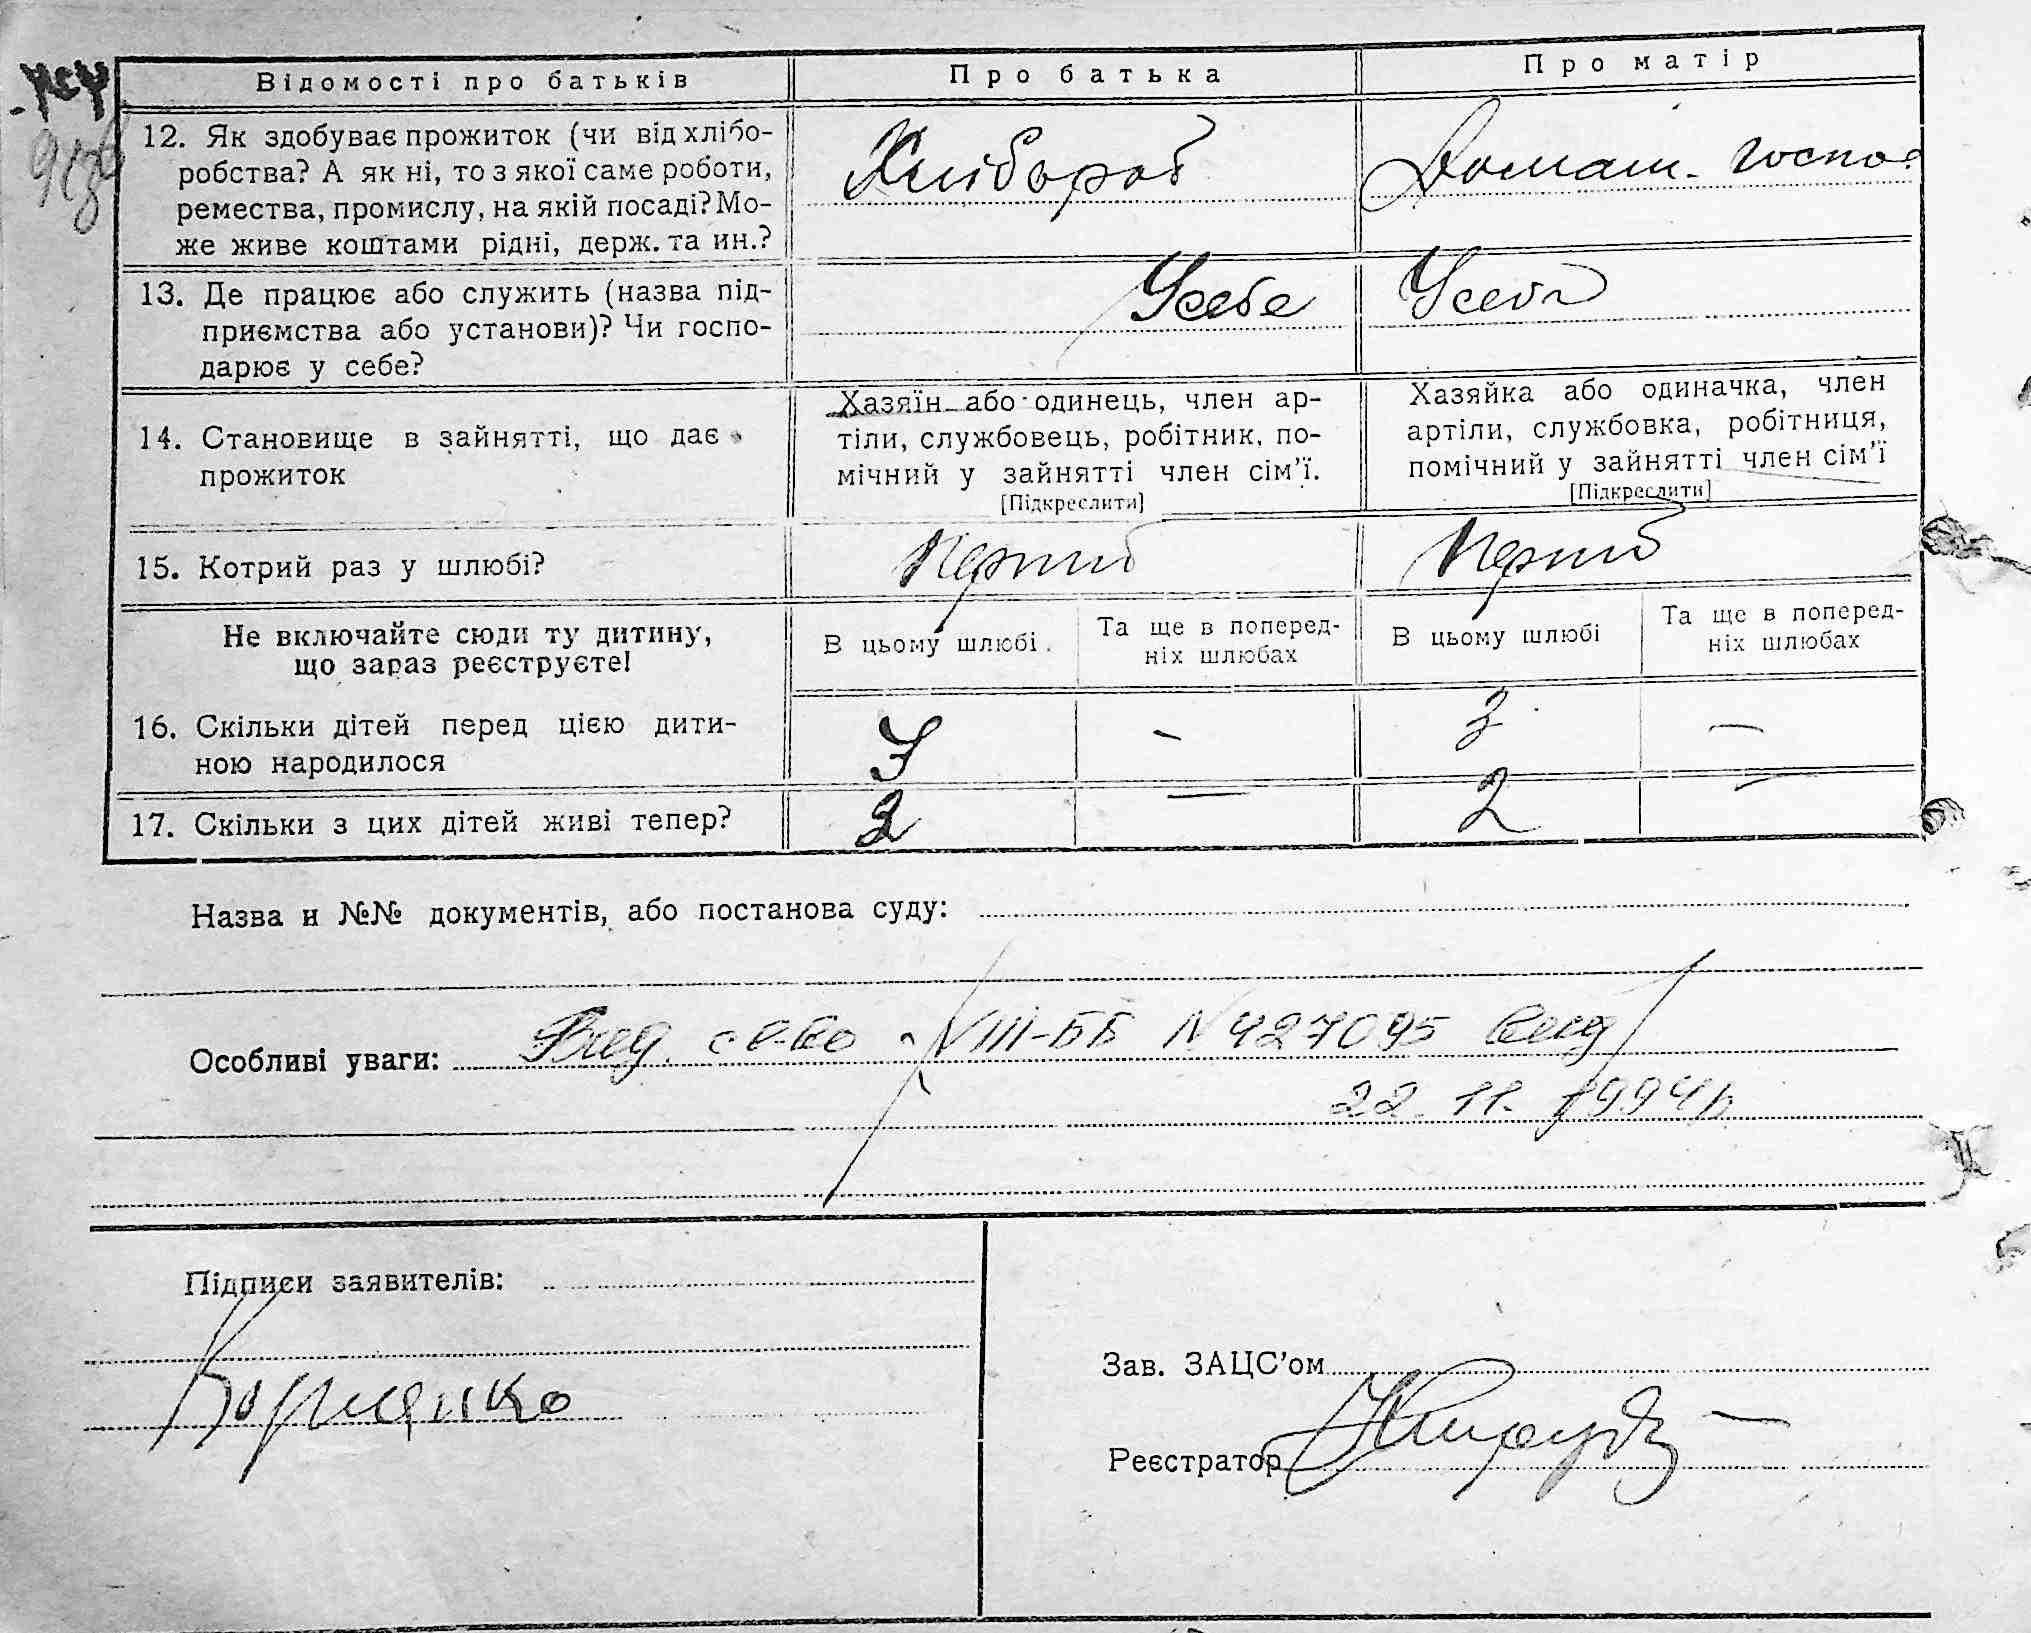 Відомості про батьків
Про батька
Про матір
12. Як здобуває прожиток (чи від хлібо-
робства? А як ні, то з якої саме роботи,
ремества, промислу, на якій посаді? Мо-
же живе коштами рідні, держ. та ин.?
Хлібороб
Домаш. госпо.
13. Де працює або служить (назва під-
приємства або установи)? Чи госпо-
дарює у себе?
У себе
У себе
14. Становище в зайнятті, що дає
прожиток
Хазяїн або одинець, член ар-
тіли, службовець, робітник, по-
мічний у зайнятті член сім’ї.
[Підкреслити]
Хазяйка або одиначка, член
артіли, службовка, робітниця,
помічний у зайнятті член сім’ї
[Підкреслити]
15. Котрий раз у шлюбі?
Перший
Перший
Не включайте сюди ту дитину,
що зараз реєструєте!
В цьому шлюбі
Та ще в поперед-
ніх шлюбах
В цьому шлюбі
Та ще в поперед-
ніх шлюбах
16. Скільки дітей перед цією дити-
ною народилося
3
-
3
-
17. Скільки з цих дітей живі тепер?
2
-
2
-
Назва и №№ документів, або постанова суду:
Особливі уваги: Вид. св-во VIII-ББ N 427095 вид
22. 11. 1994р
Підписи заявителів:
Зав. ЗАЦС’ом
Реєстратор